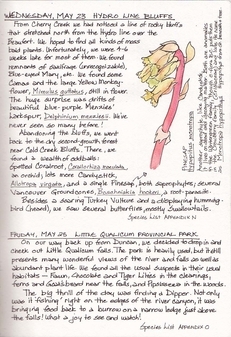 WEDNESDAY, MAY 23 HYDRO LINE BLUFFS
From Cherry Creek we had noticed a line of rocky bluffs
that stretched north from the Hydro line over the
Beaufort. We hoped to find all kinds of moss
bald plants. Unfortunately, we were 4-6
weeks late for most of them. We found
remnants of Saxifrage (unrecognizable),
Blue-eyed Mary, etc. We found some
Camas and the large Yellow Monkey-
flower, Mimulus guttatus, still in flower.
The huge surprise was drifts of
beautiful blue-purple Menzies'
Larkspur, Delphinium menziesii. We've
never seen so many before!
Abandoning the bluffs, we went
back to the dry second-growth forest
near Cold Creek Bluffs. There, we
found a wealth of oddballs:
Spotted Coralroot, Corallorhiza maculata,
an orchid, lots more Candystick,
Allotropa virgata, and a single Pinesap, both saprophytes; several
Vancouver Groundcones, Boschniakia hookeri, a root-parasite.
Besides a soaring Turkey Vulture and a displaying humming-
bird (heard), we saw several butterflies, mostly Swallowtails.
Species List APPENDIX N
FRIDAY, MAY 25 LITTLE QUALICUM PROVINCIAL PARK.
On our way back up from Duncan, we decided to drop in and
check out Little Qualicum Falls. The park is heavily used, but it still
presents many wonderful views of the river and falls as well as
abundant plant life. We found all the usual suspects in their usual
habitats – Fawn, Chocolate and Tiger Lilies in the clearings,
ferns and Goatsbeard near the falls, and Pipsissewa in the woods.
The big thrill of the day was finding a Dipper. Not only
was it fishing right on the edges of the river canyon, it was
bringing food back to a burrow on a narrow ledge just above
the falls! What a joy to see and watch!
Species List APPENDIX O
Pinesap